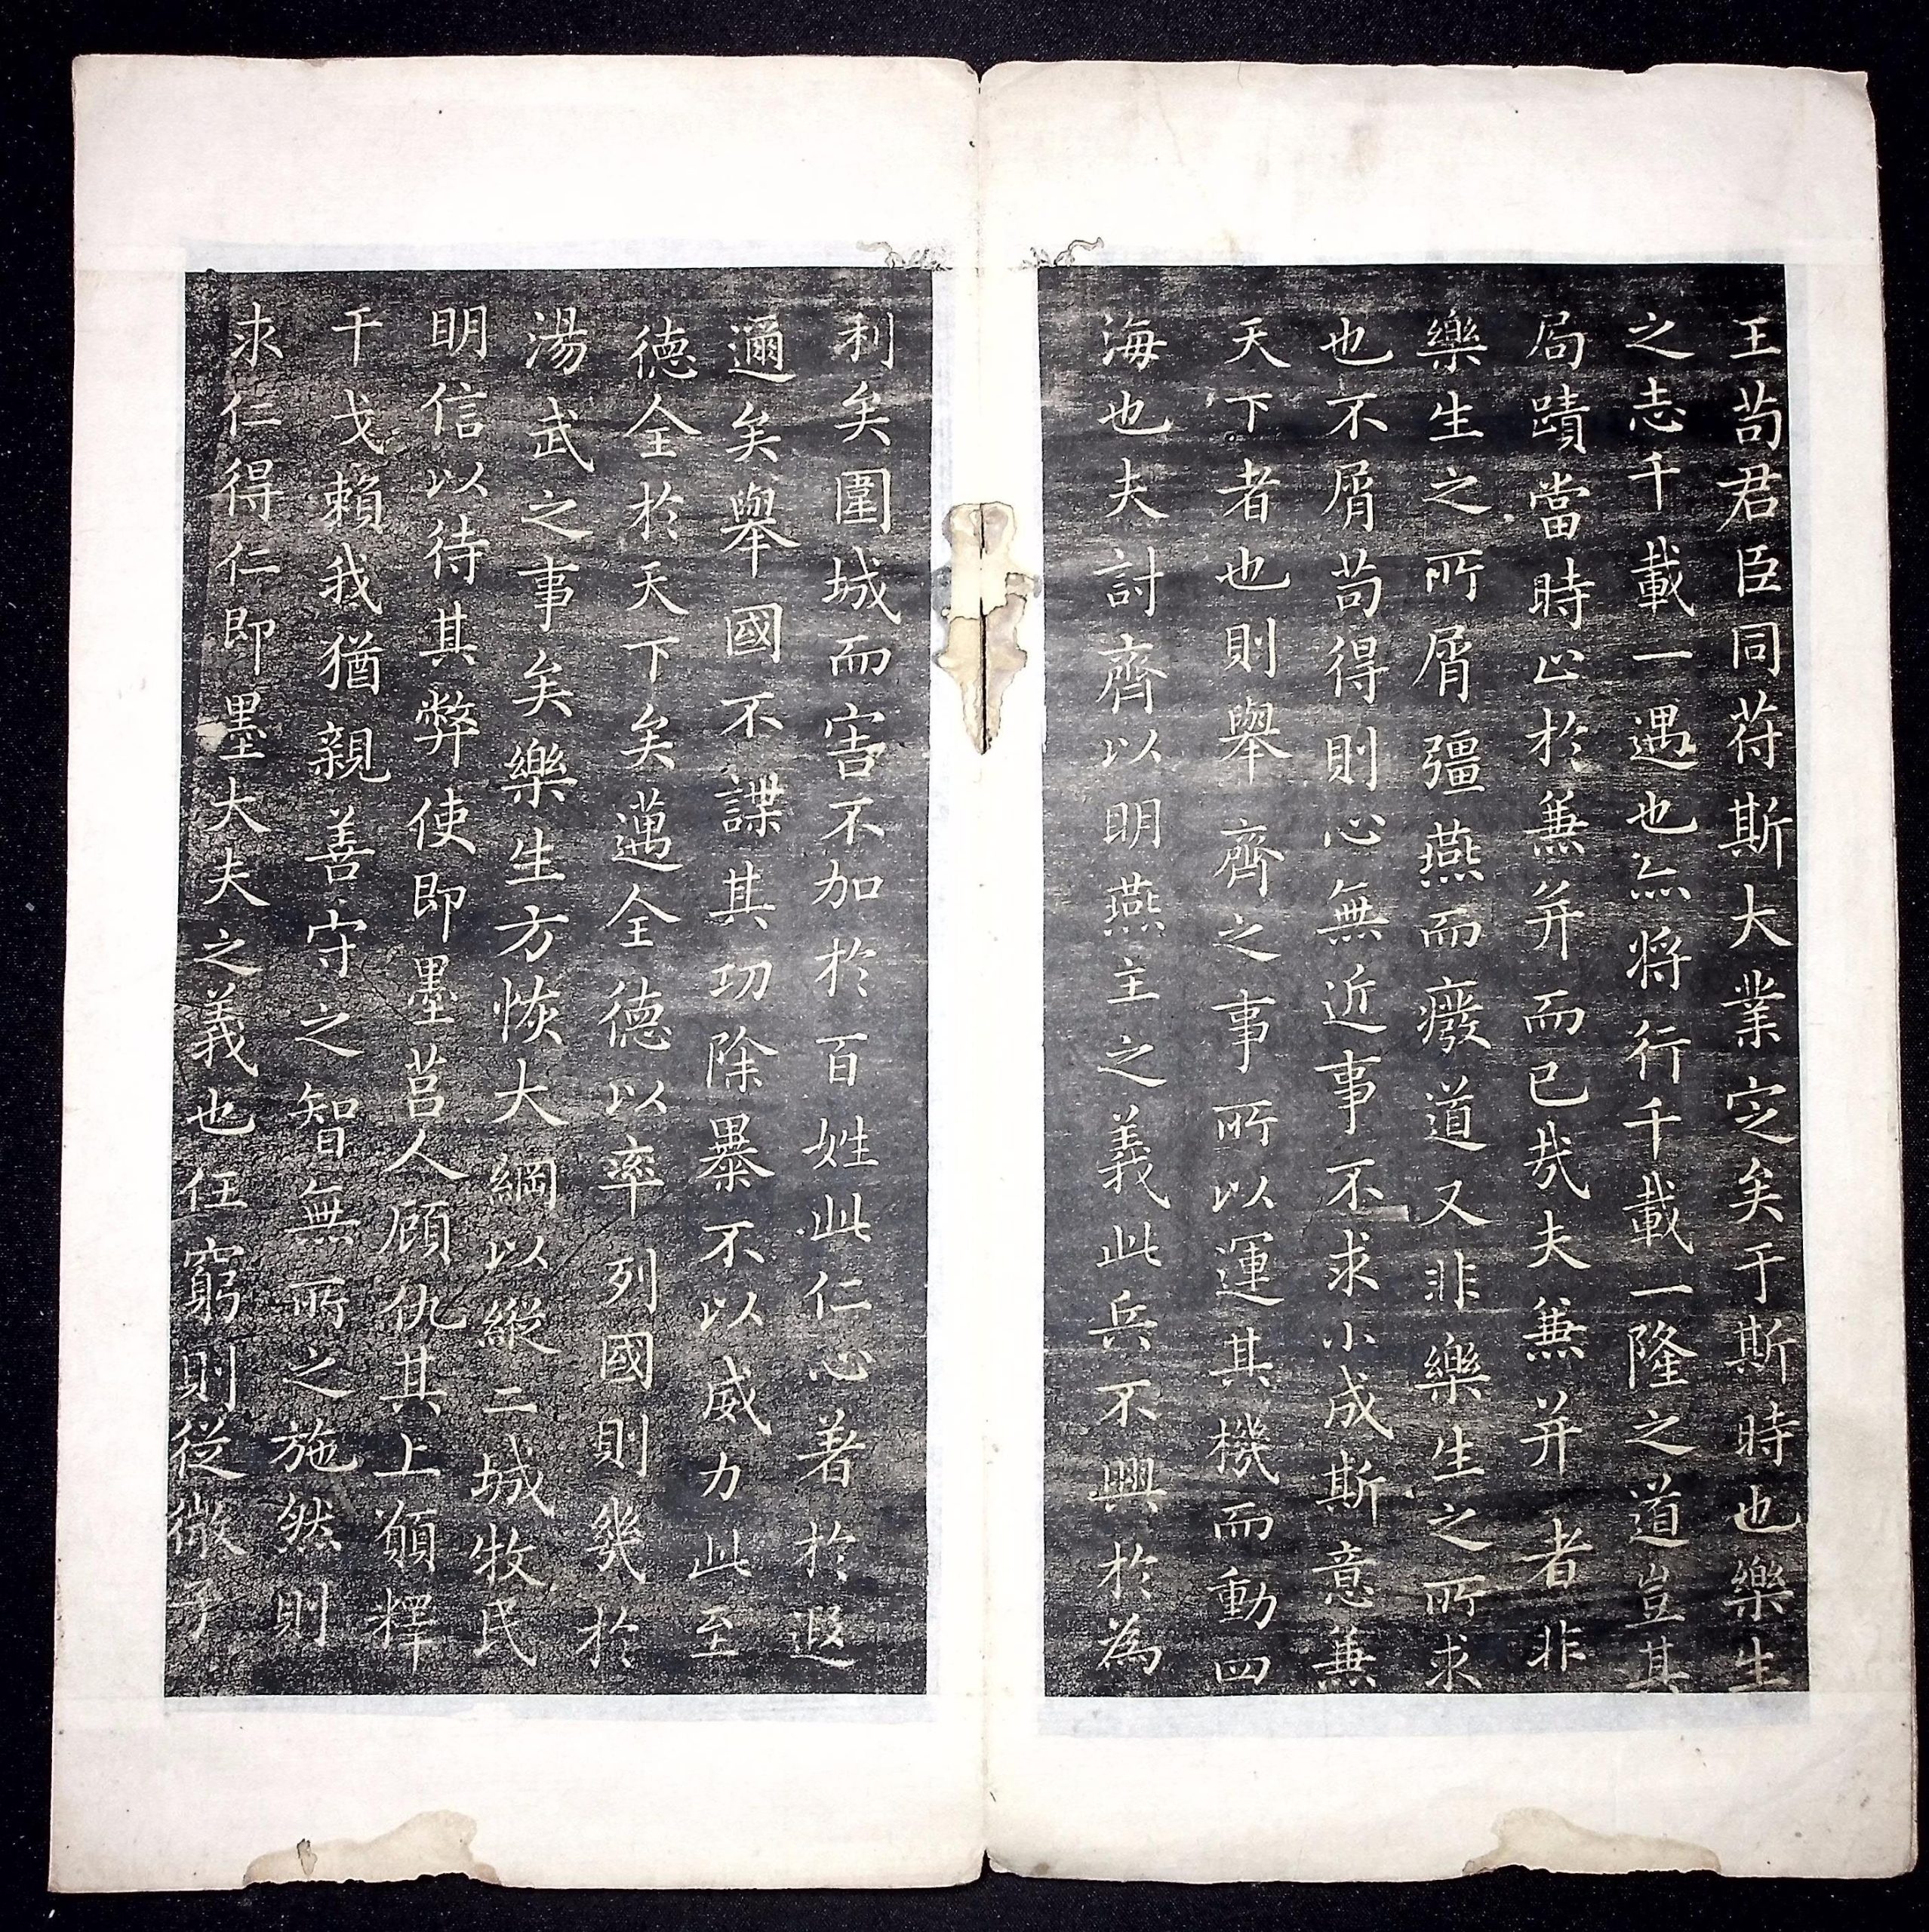 王苟君臣同苻斯大業定矣于斯時也樂生
之志千載一遇也亦將行千載一隆之道豈其
局蹟當時止於兼并而已哉夫兼并者非
樂生之所屑彊燕而廢道又非樂生之所求
也不屑苟得則心無近事不求小成斯意兼
天下者也則舉齊之事所以運其機而動四
海也夫討齊以明燕主之義此兵不興於為
利矣圍城而害不加於百姓此仁心著於遐
邇矣舉國不謀其功除暴不以威力此至
德全於天下矣邁全德以率列國則幾於
湯武之事矣樂生方恢大綱以縱二城牧民
明信以待其弊使即墨莒人顧仇其上願釋
干戈賴我猶親善守之智無所之施然則
求仁得仁即墨大夫之義也任窮則從微子